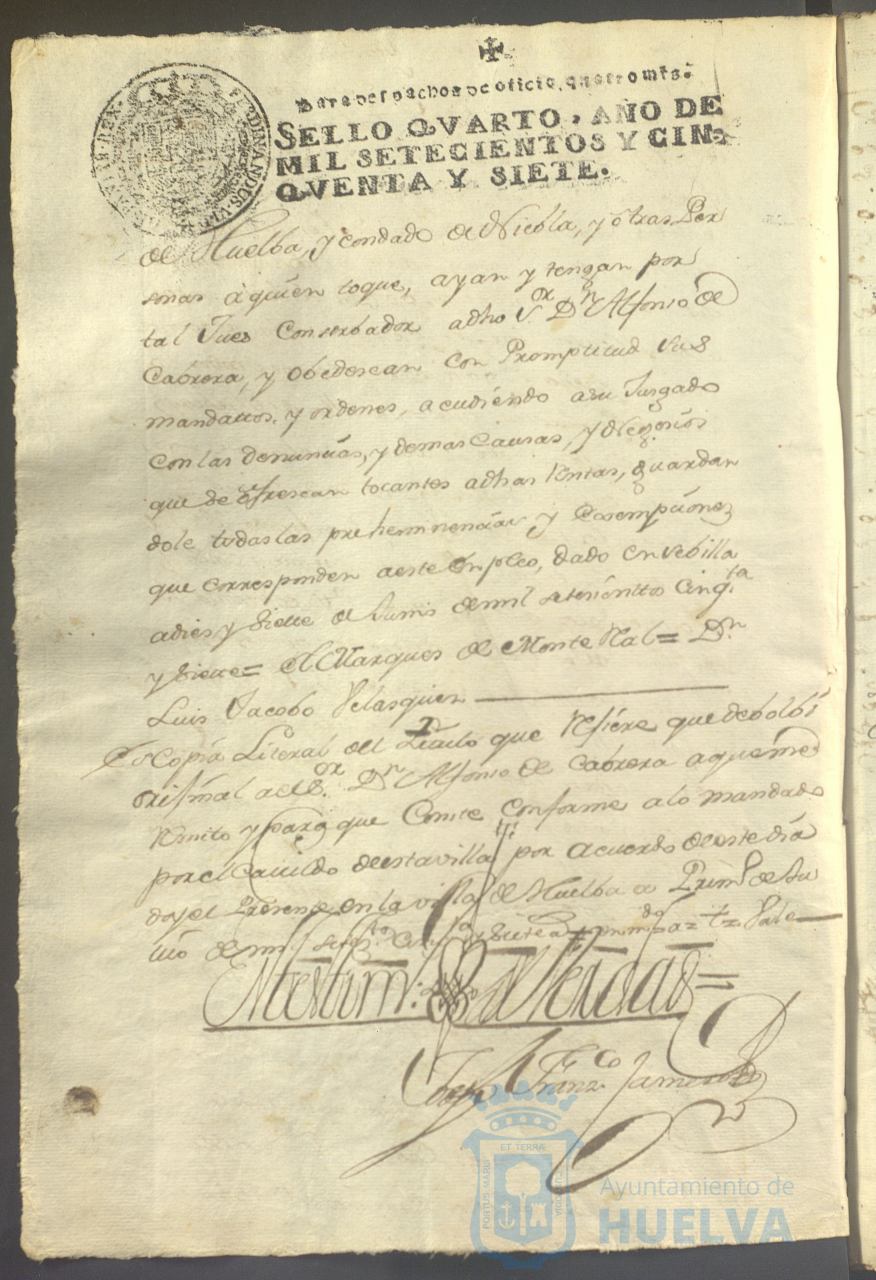 Para despachos de oficio, quatro mrs.
SELLO QVARTO, AÑO DE
MIL SETECIENTOS Y CIN-
QVENTA Y SIETE.
FERDINANDUS VI
de Huelba, y condado de Niebla, y otras Per
sonas à quien toque, ayan y tengan por
tal Jues Conserbador adho Sor. Dn. Alfonso de
Cabrera, y obedescan con Promptitud sus
mandattos, y ordenes, acudiendo asu Jusgado
con las denuncias, y demas Causas, y Negocios
que se ofrescan tocantes adhas Rentas, guardan
dole todas las preheminencias y Esempciones
que corresponden aeste Enpleo, dado en Sebilla
adies y Siette de Junio de mil setecienttos Cinqta
y Siette= El Marques de Monte Real= Dn.
Luis Jacobo Velasques
Es Copia Literal del Titulo que Refiere que debolbi
orijinal ael Sor. Dn. Alfonso de Cabrera aqueme
Remito y para que Conste conforme alo mandado
por el Cauildo deesta villa por acuerdo deeste dia
doy el Presente en la villa de Huelba a Primo. de Ju
lio de mil setezs.
En testimo. de Verdad=
Joseph Franzco.
ET TERRA
PORTUS MARIS
CUSTODIA
Ayuntamiento de
HUELVA